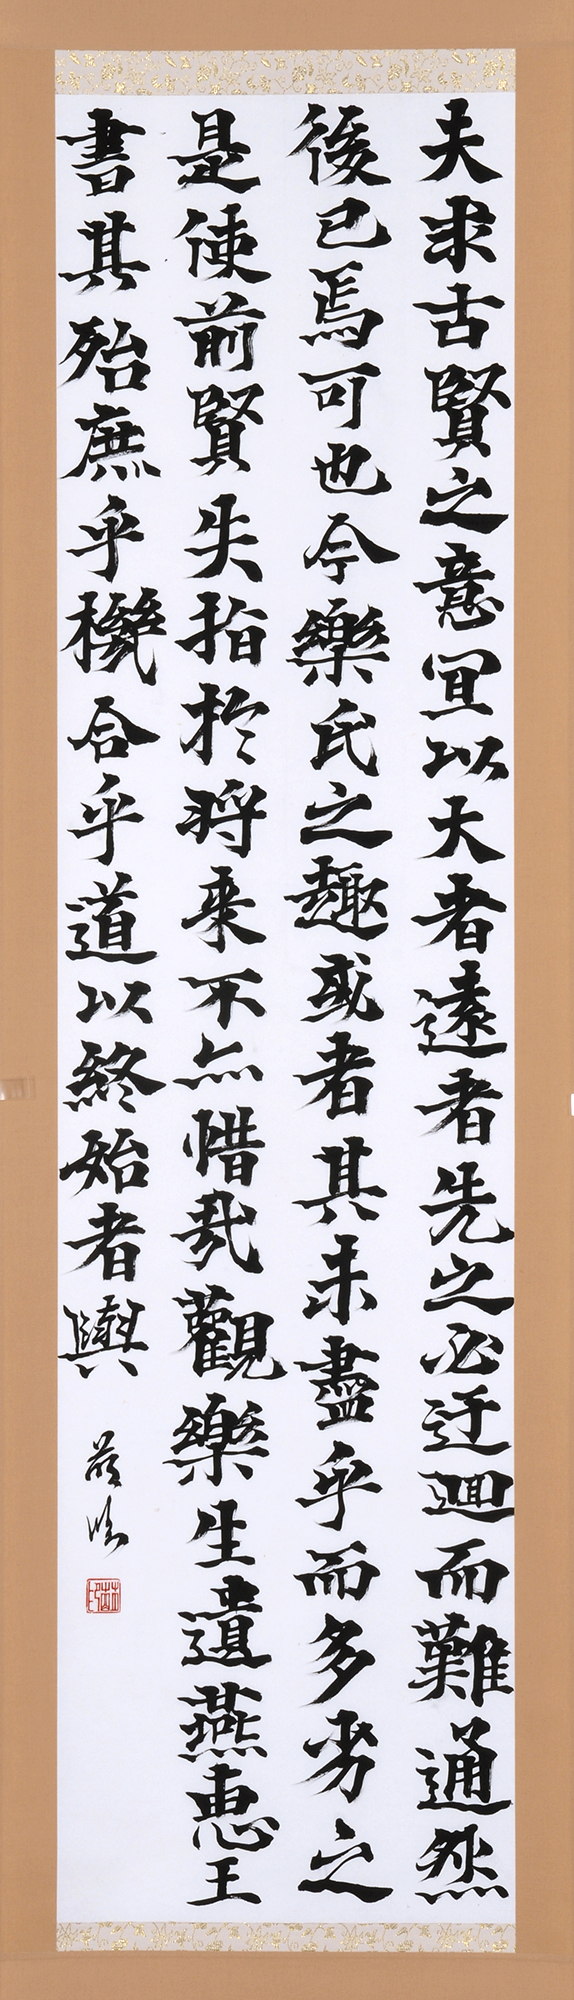 夫求古賢之意宜以大者遠者先之必迂迴而難通然
後已焉可也今樂氏之趣或者其未盡乎而多劣之
是使前賢失指於将来不亦惜哉觀樂生遺燕惠王
書其殆庶乎機合乎道以終始者與